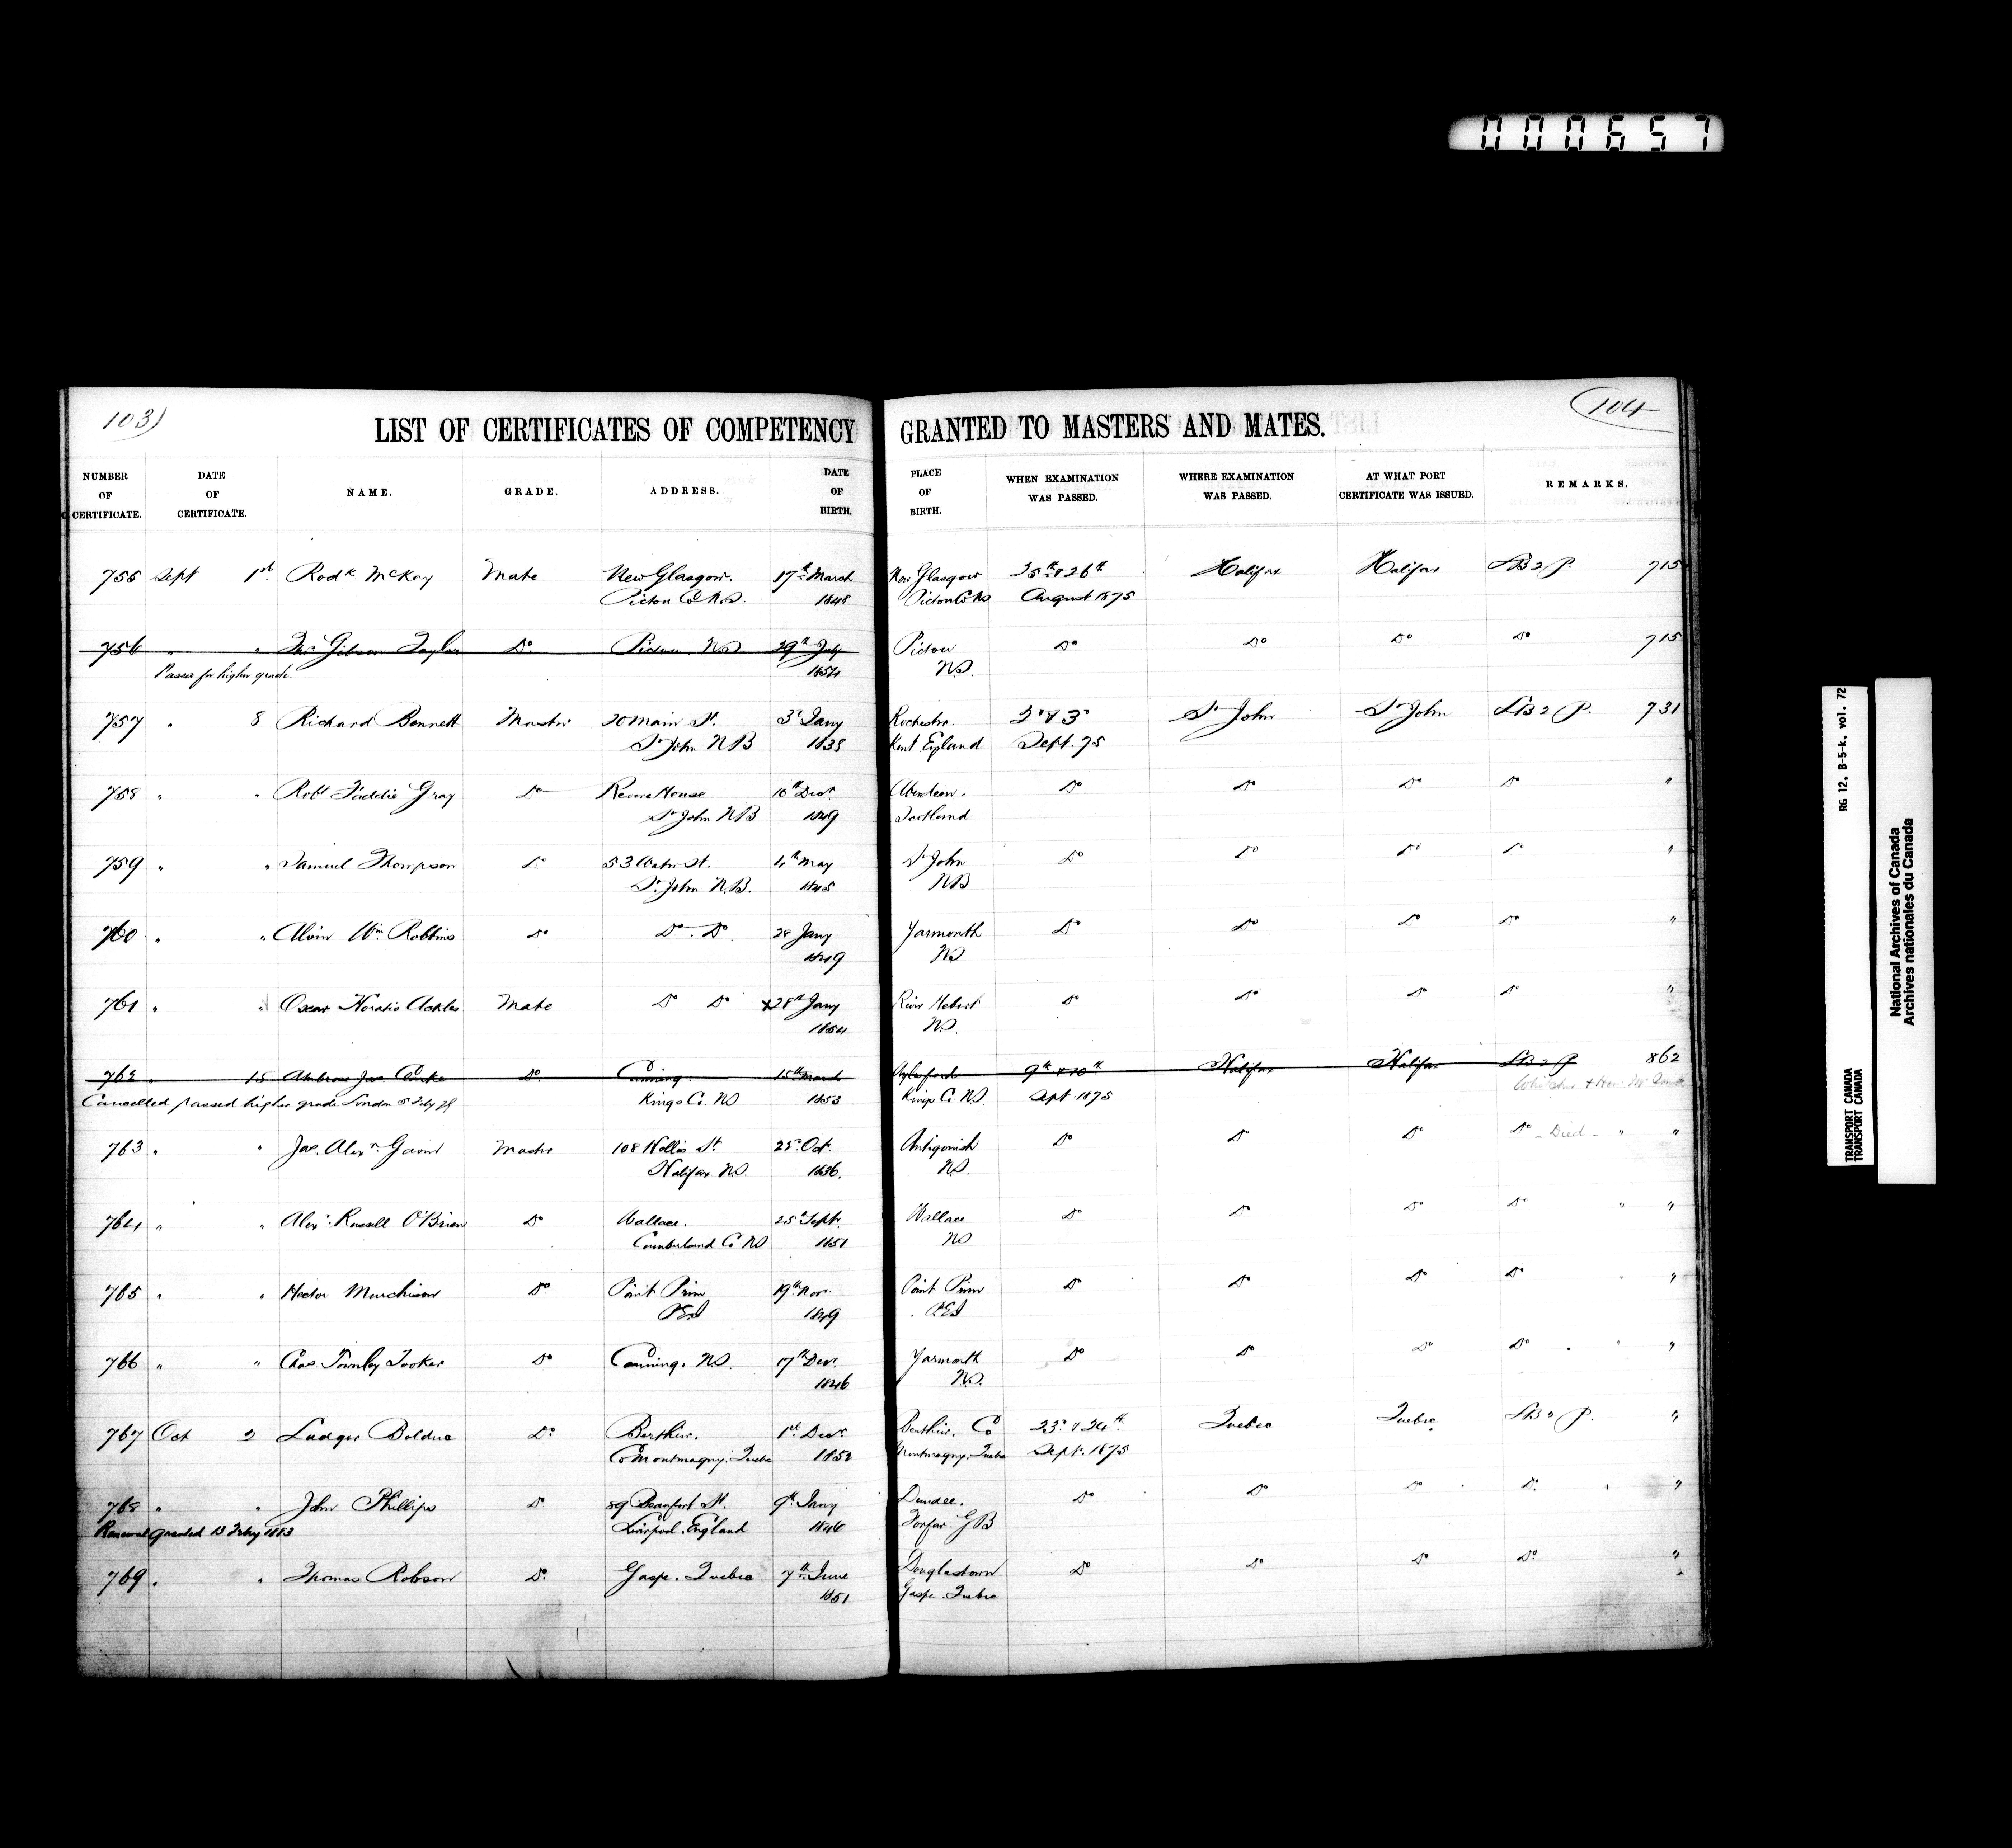 000657
103)
104
LIST OF CERTIFICATES OF COMPETENCY GRANTED TO MASTERS AND MATES.
NUMBER OF CERTIFICATE. DATE OF CERTIFICATE. NAME. GRADE. ADDRESS. DATE OF BIRTH. PLACE OF BIRTH. WHEN EXAMINATION WAS PASSED. WHERE EXAMINATION WAS PASSED. AT WHAT PORT CERTIFICATE WAS ISSUED. REMARKS.
755 Sept 1st Rodk McKay Mate New Glasgow. 17th March New Glasgow 25th & 26th Halifax Halifax 715
Pictou Co N.S. 1848 Pictou Co NS August 1875
756 " " Gibson Taylor Do Pictou. NS 29th July Pictou Do Do Do Do 715
Passed for higher grade. 1854 N.S.
757 " 8 Richard Bennett Master 20 Main St. 3d Jany Rochester. 2d & 3d St John St John 731
St John NB 1835 Kent England Sept. 75
758 " " Robt Gray Do Revere House 10th Decr Aberdeen. Do Do Do Do "
St John NB 1849 Scotland
759 " " Samuel Thompson Do 53 Water St. 4th May St John Do Do Do Do "
St John N.B. 1845 NB
760 " " Alvin Wm Robbins Do Do. Do. 28 Jany Yarmouth Do Do Do Do "
1849 NS
761 " " Oscar Horatio Ackles Mate Do Do X28th Jany River Hebert Do Do Do Do "
1854 N.S.
762 " 15 Ambrose Jas Clarke Do Canning. 15th March Aylesford 9th & 10th Halifax Halifax 862
Cancelled passed higher grade London 5 Feby Kings Co. NS 1853 Kings Co NS. Sept. 1875
763 " " Jas. Alexr Master 108 Hollis St 25th Oct. Antigonish Do Do Do Do - Died - " "
Halifax N.S. 1836. N.S.
764 " " Alexr Russell O'Brien Do Wallace. 25th Sept. Wallace Do Do Do Do " "
Cumberland Co. NS 1851 NS
765 " " Hector Murchison Do Point Prim 19th Nov. Point Prim Do Do Do Do " "
P.E.I 1849 P.E.I
766 " " Chas. Townley Tooker Do Canning. NS. 17th Decr Yarmouth Do Do Do Do " "
1846 N.S.
767 Oct 2 Ludger Bolduc Do Berthier. 1st Decr Berthier. Co 23d & 24th Quebec Quebec "
Co Montmagny. Quebec 1852 Montmagny. Quebec Sept. 1875
768 " " John Phillips Do 89 Beaufort St. 9th Jany Dundee. Do Do Do Do "
Renewal granted 13 Feby 1883 Liverpool. England 1846 Forfar. GB
769 " " Thomas Robson Do Gaspe. Quebec 7th June Douglastown Do Do Do Do "
1851 Gaspe. Quebec
RG 12, B-5-k, vol. 72
TRANSPORT CANADA
TRANSPORT CANADA
National Archives of Canada
Archives nationales du Canada